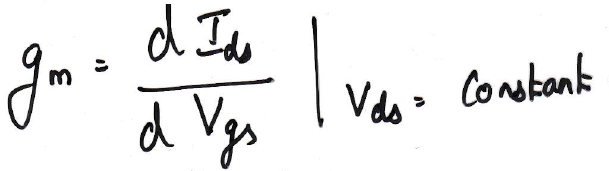 g_m = \frac{d I_{ds}}{d V_{gs}} | V_{ds} = constant